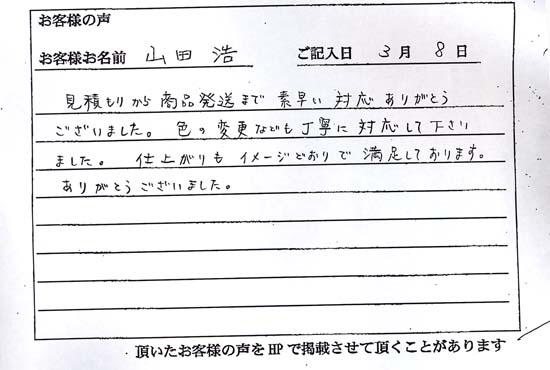 お客様の声
お客様お名前 山田 浩 ご記入日 3月 8日
見積もりから商品発送まで 素早い 対応 ありがとう
ございました。 色の変更なども丁寧に対応して下さり
ました。 仕上がりも イメージどおりで 満足しております。
ありがとうございました。
頂いたお客様の声をHPで掲載させて頂くことがあります